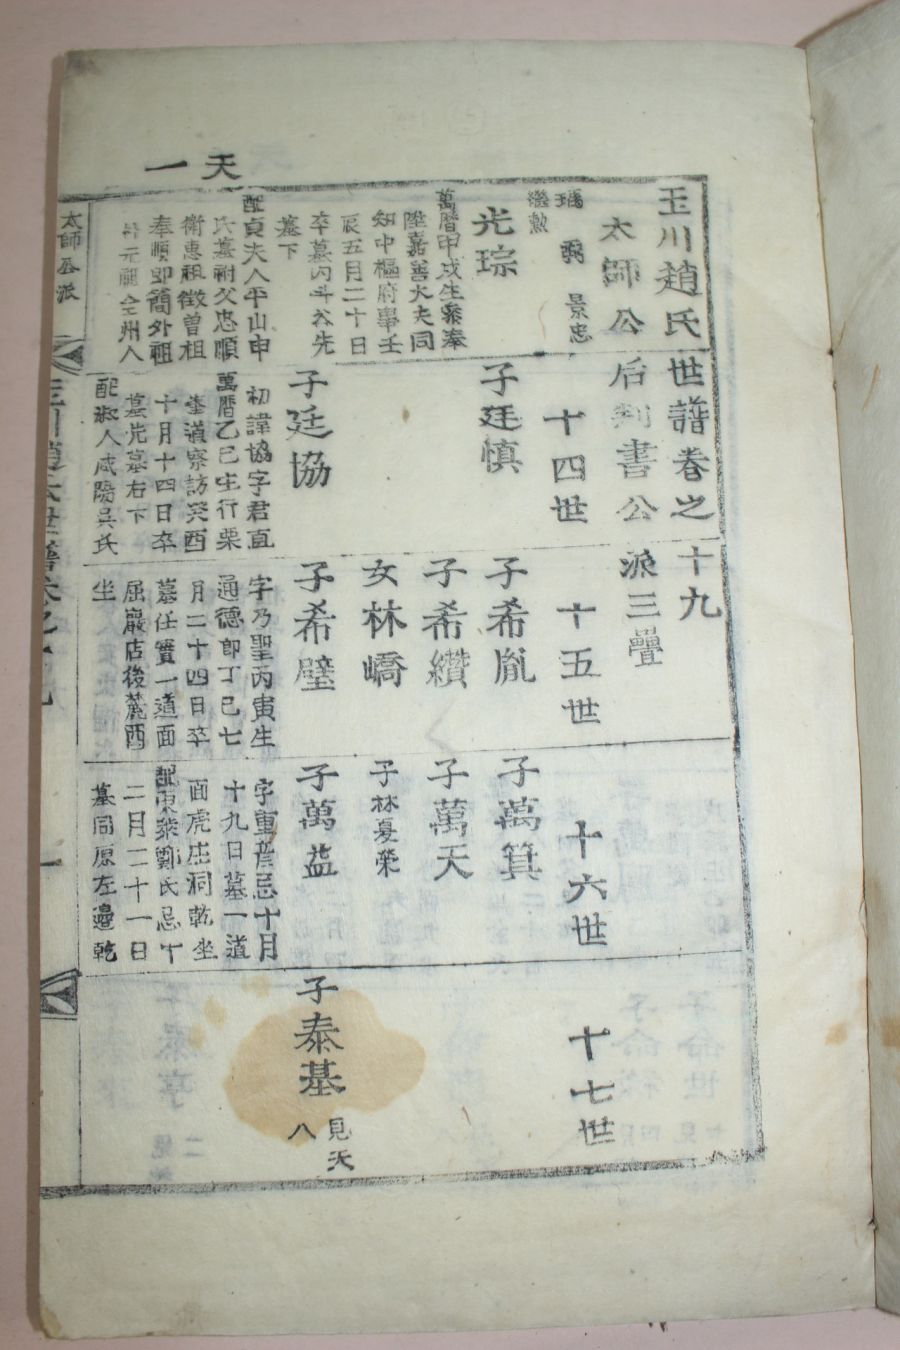 天一
玉川趙氏世譜卷之十九
太師公后判書公派三疊
景忠
繼勲
十四世
十五世
十六世
十七世
光琮
萬曆甲戌生乘奉
陞嘉善大夫同
知中樞府事壬
辰五月二十日
卒墓内斗谷先
墓下
配貞夫人平山申
氏墓祔父忠順
衛惠祖徵曾祖
奉順郎簡外祖
元龍全州人
子廷愼
子希胤
子萬箕
子希纘
子萬天
女林嶠
子林夏榮
子廷協
初諱協字君直
萬曆乙巳生行栗
峯道察訪癸酉
十月十四日卒
墓先墓右下
配淑人咸陽吳氏
子希璧
字乃聖丙寅生
通德郎丁巳七
月二十四日卒
墓任實一道面
屈巖店後麓酉
坐
子萬益
字重彦忌十月
十九日墓一道
面虎庄洞乾坐
配東萊鄭氏忌十
二月二十一日
墓同原左邊乾
子泰基
見天
八
太師公派
玉川趙氏世譜卷之十九
一